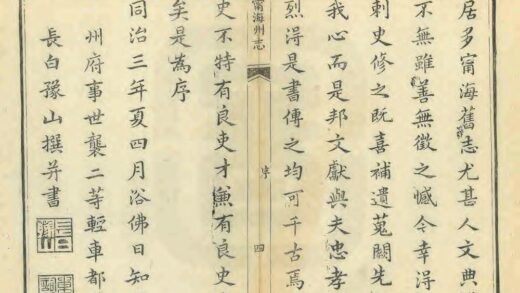 居多甯海舊志尤甚人文典
不無雖善無徵之憾今幸得
刺史修之既喜補遺蒐闕先
我心而是邦文獻與夫忠孝
烈得是書傳之均可千古焉
甯海州志
序
四
史不特有良吏才兼有良史
矣是為序
同治三年夏四月浴佛日知
州府事世襲二等輕車都
長白豫山撰并書